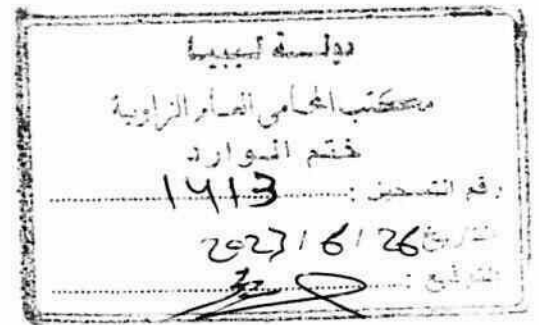 دولة ليبيا
مكتب المحامي العام الزاوية
ختم الموارد
رقم التسجيل : 1413
التاريخ 26 / 6 / 2023
التوقيع :